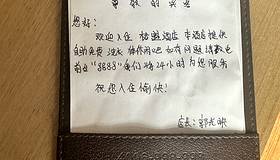 尊敬的宾客
您好:
欢迎入住 格雅酒店 本酒店提供
自助免费 洗衣 休闲吧 如有问题请致电
前台"8888"我们将24小时为您服务
祝您入住愉快!
店长:郭光映